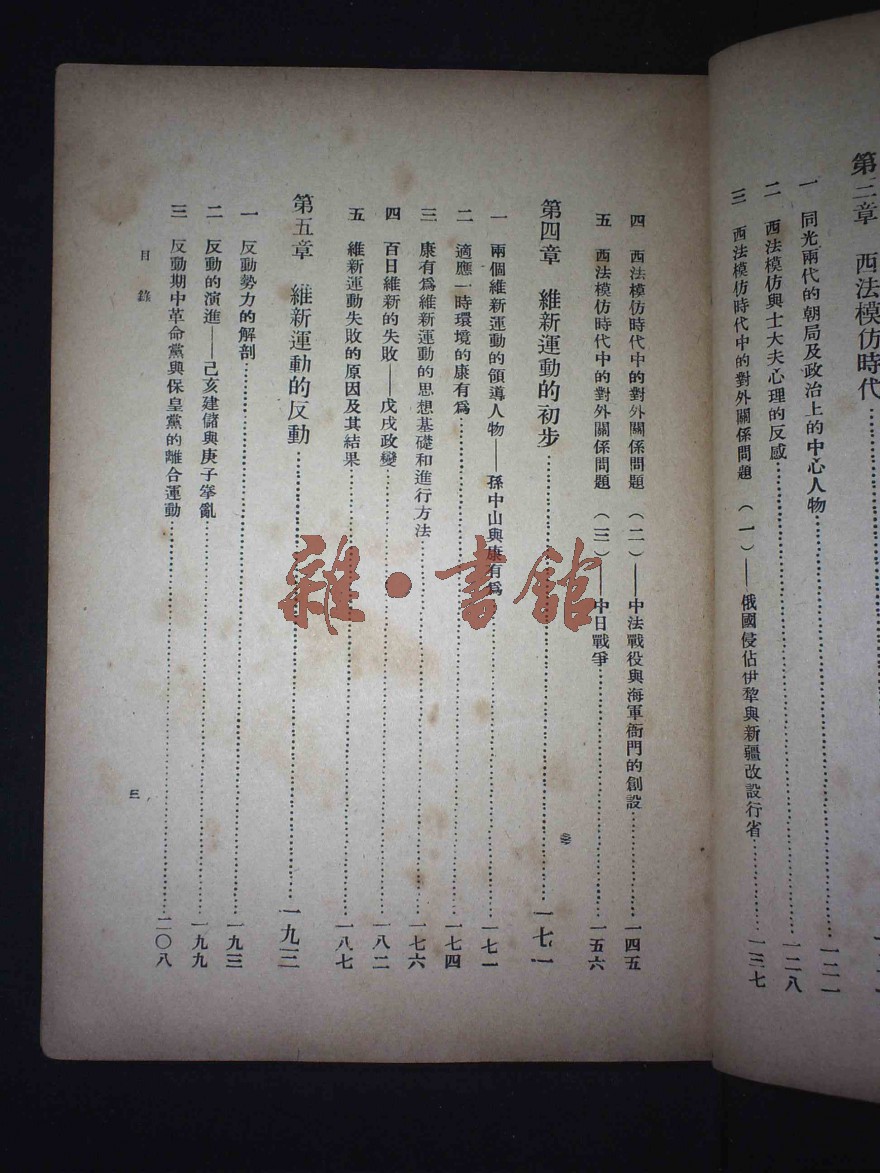 第三章　西法模仿時代……
一　同光兩代的朝局及政治上的中心人物……一二一
二　西法模仿與士大夫心理的反感……一二八
三　西法模仿時代中的對外關係問題（一）——俄國侵佔伊犂與新疆改設行省……一三七
四　西法模仿時代中的對外關係問題（二）——中法戰役與海軍衙門的創設……一四五
五　西法模仿時代中的對外關係問題（三）——中日戰爭……一五六
第四章　維新運動的初步……一七一
一　兩個維新運動的領導人物——孫中山與康有爲……一七一
二　適應一時環境的康有爲……一七四
三　康有爲維新運動的思想基礎和進行方法……一七六
四　百日維新的失敗——戊戌政變……一八二
五　維新運動失敗的原因及其結果……一八七
第五章　維新運動的反動……一九三
一　反動勢力的解剖……一九三
二　反動的演進——己亥建儲與庚子拳亂……一九九
三　反動期中革命黨與保皇黨的離合運動……二〇八
目錄
三
雜·書館